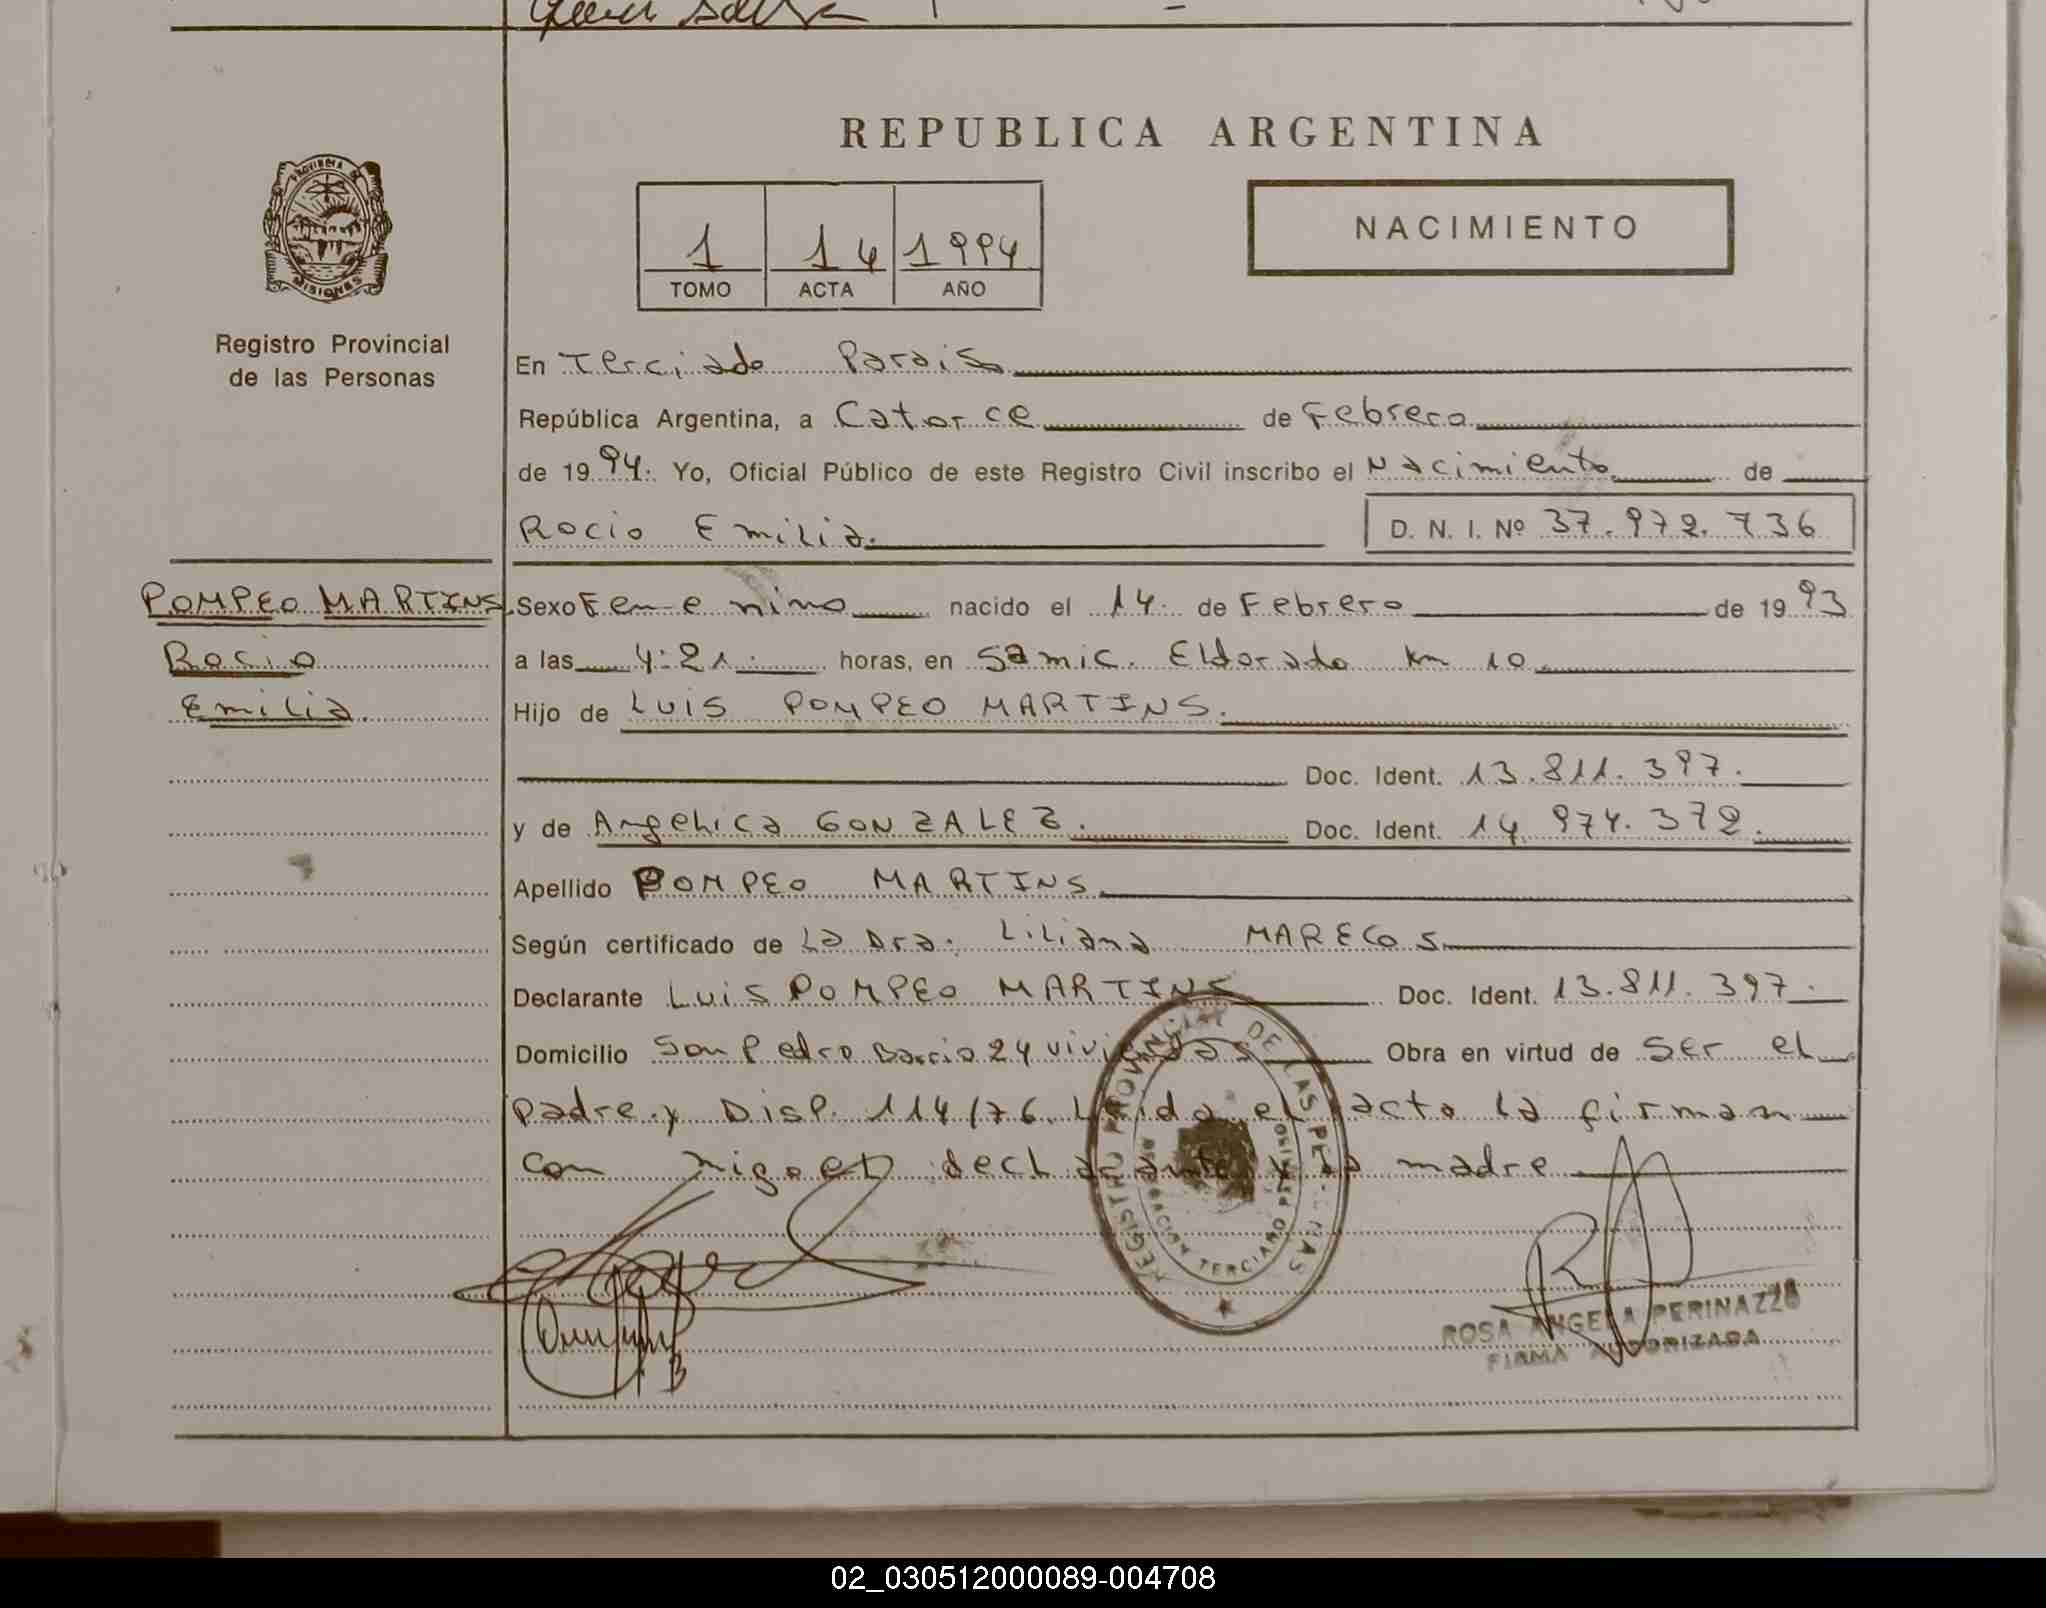 REPUBLICA ARGENTINA
PROVINCIA DE
MISIONES
1 14 1994
TOMO ACTA AÑO
NACIMIENTO
Registro Provincial
de las Personas
En Terciado Paraiso
República Argentina, a Catorce de Febrero
de 19 94. Yo, Oficial Público de este Registro Civil inscribo el Nacimiento de
Rocio Emilia. D. N. I. Nº 37.972.736
POMPEO MARTINS
Rocio
Emilia.
Sexo Femenino nacido el 14 de Febrero de 19 93
a las 4:21 horas, en Samic. Eldorado Km 10
Hijo de LUIS POMPEO MARTINS.
Doc. Ident. 13.811.397.
y de Angelica GONZALEZ. Doc. Ident. 14.974.372.
Apellido POMPEO MARTINS
Según certificado de La Dra. Liliana MARECOS
Declarante LUIS POMPEO MARTINS Doc. Ident. 13.811.397.
Domicilio San Pedro Barrio 24 viviendas Obra en virtud de ser el
padre y Disp. 114/76. Leida el acta la firman
con migo el declarante y la madre
REGISTRO PROVINCIAL DE LAS PERSONAS
ROSA ANGELA PERINAZZO
FIRMA AUTORIZADA
02_030512000089-004708